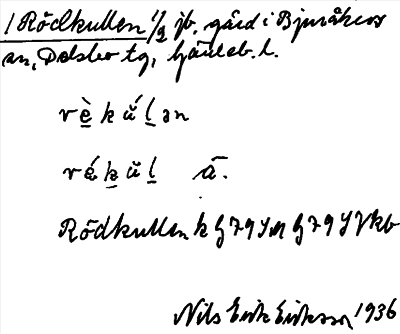 1 Rödkullen 1/2 jb. gård i Bjuråkers
sn, Delsbo tg, Gävleb. l.
rè̱ku̇́ḻən
ré̱ḵŭḻ ā.
Rödkullen k G79 SM G79 S Vkb
Nils Erik Eriksson 1936